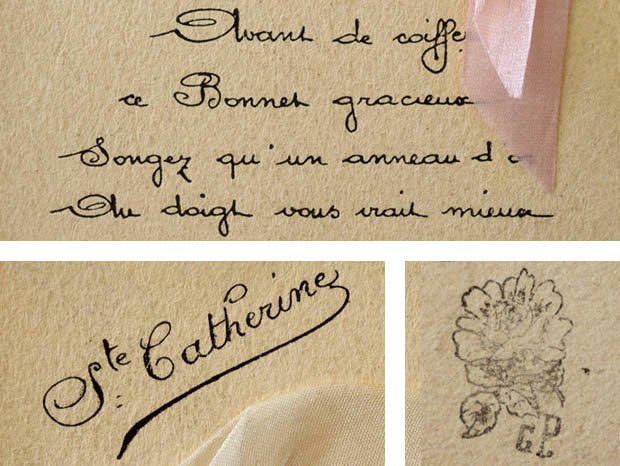 Avant de coiffe
ce Bonnet gracieux
Songez qu'un anneau d'
Au doigt vous irait mieux
Ste Catherine